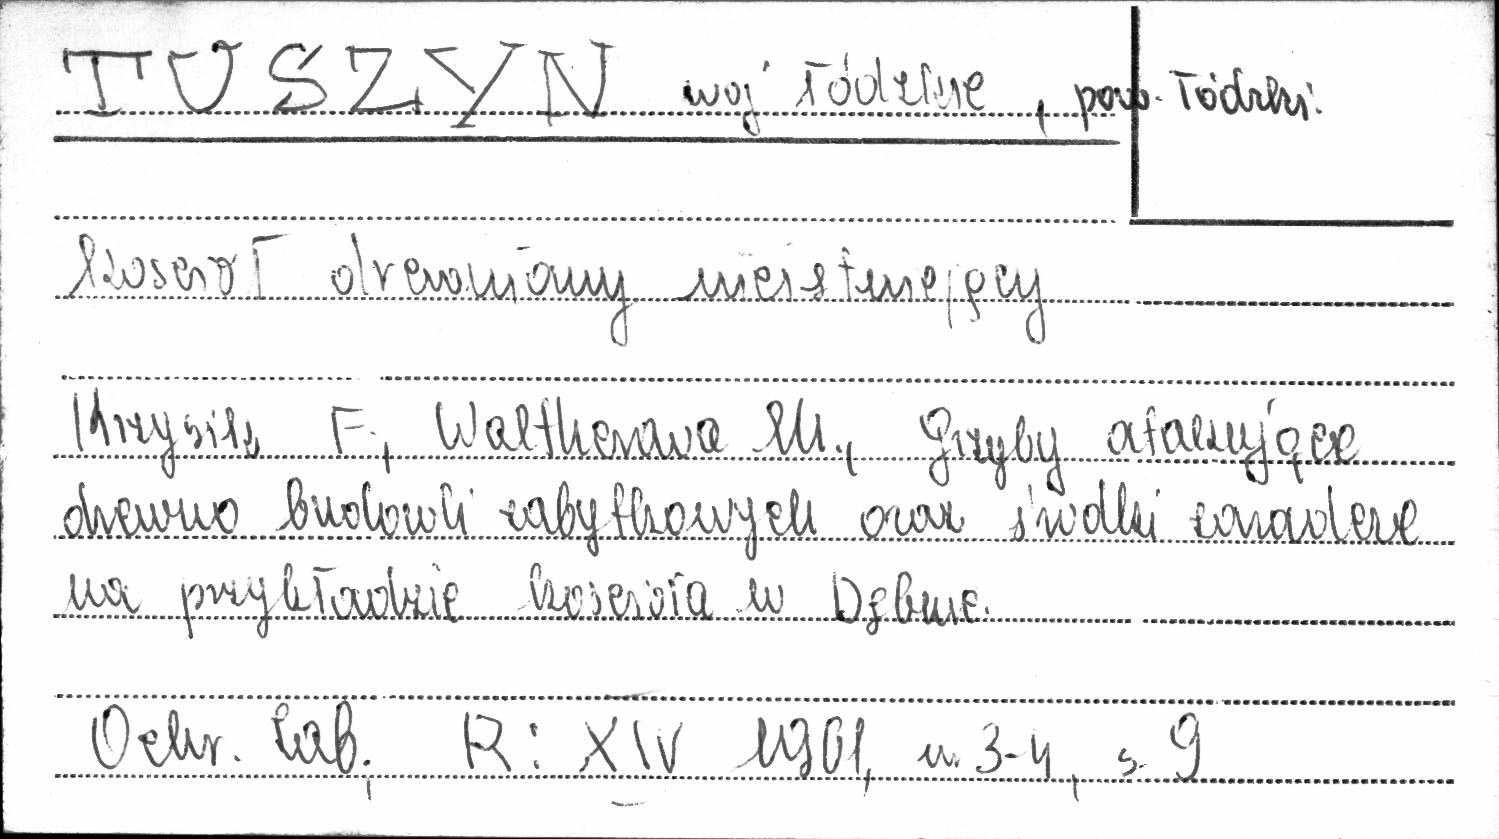 TUSZYN woj łódzkie, pow. łódzki
kościół drewniany nieistniejący
Krzysik F., Waltherowa M., Grzyby atakujące
drewno budowli zabytkowych oraz środki zaradcze
na przykładzie kościoła w Dębnie.
Ochr. Zab., R: XIV 1961, n. 3-4, s. 9